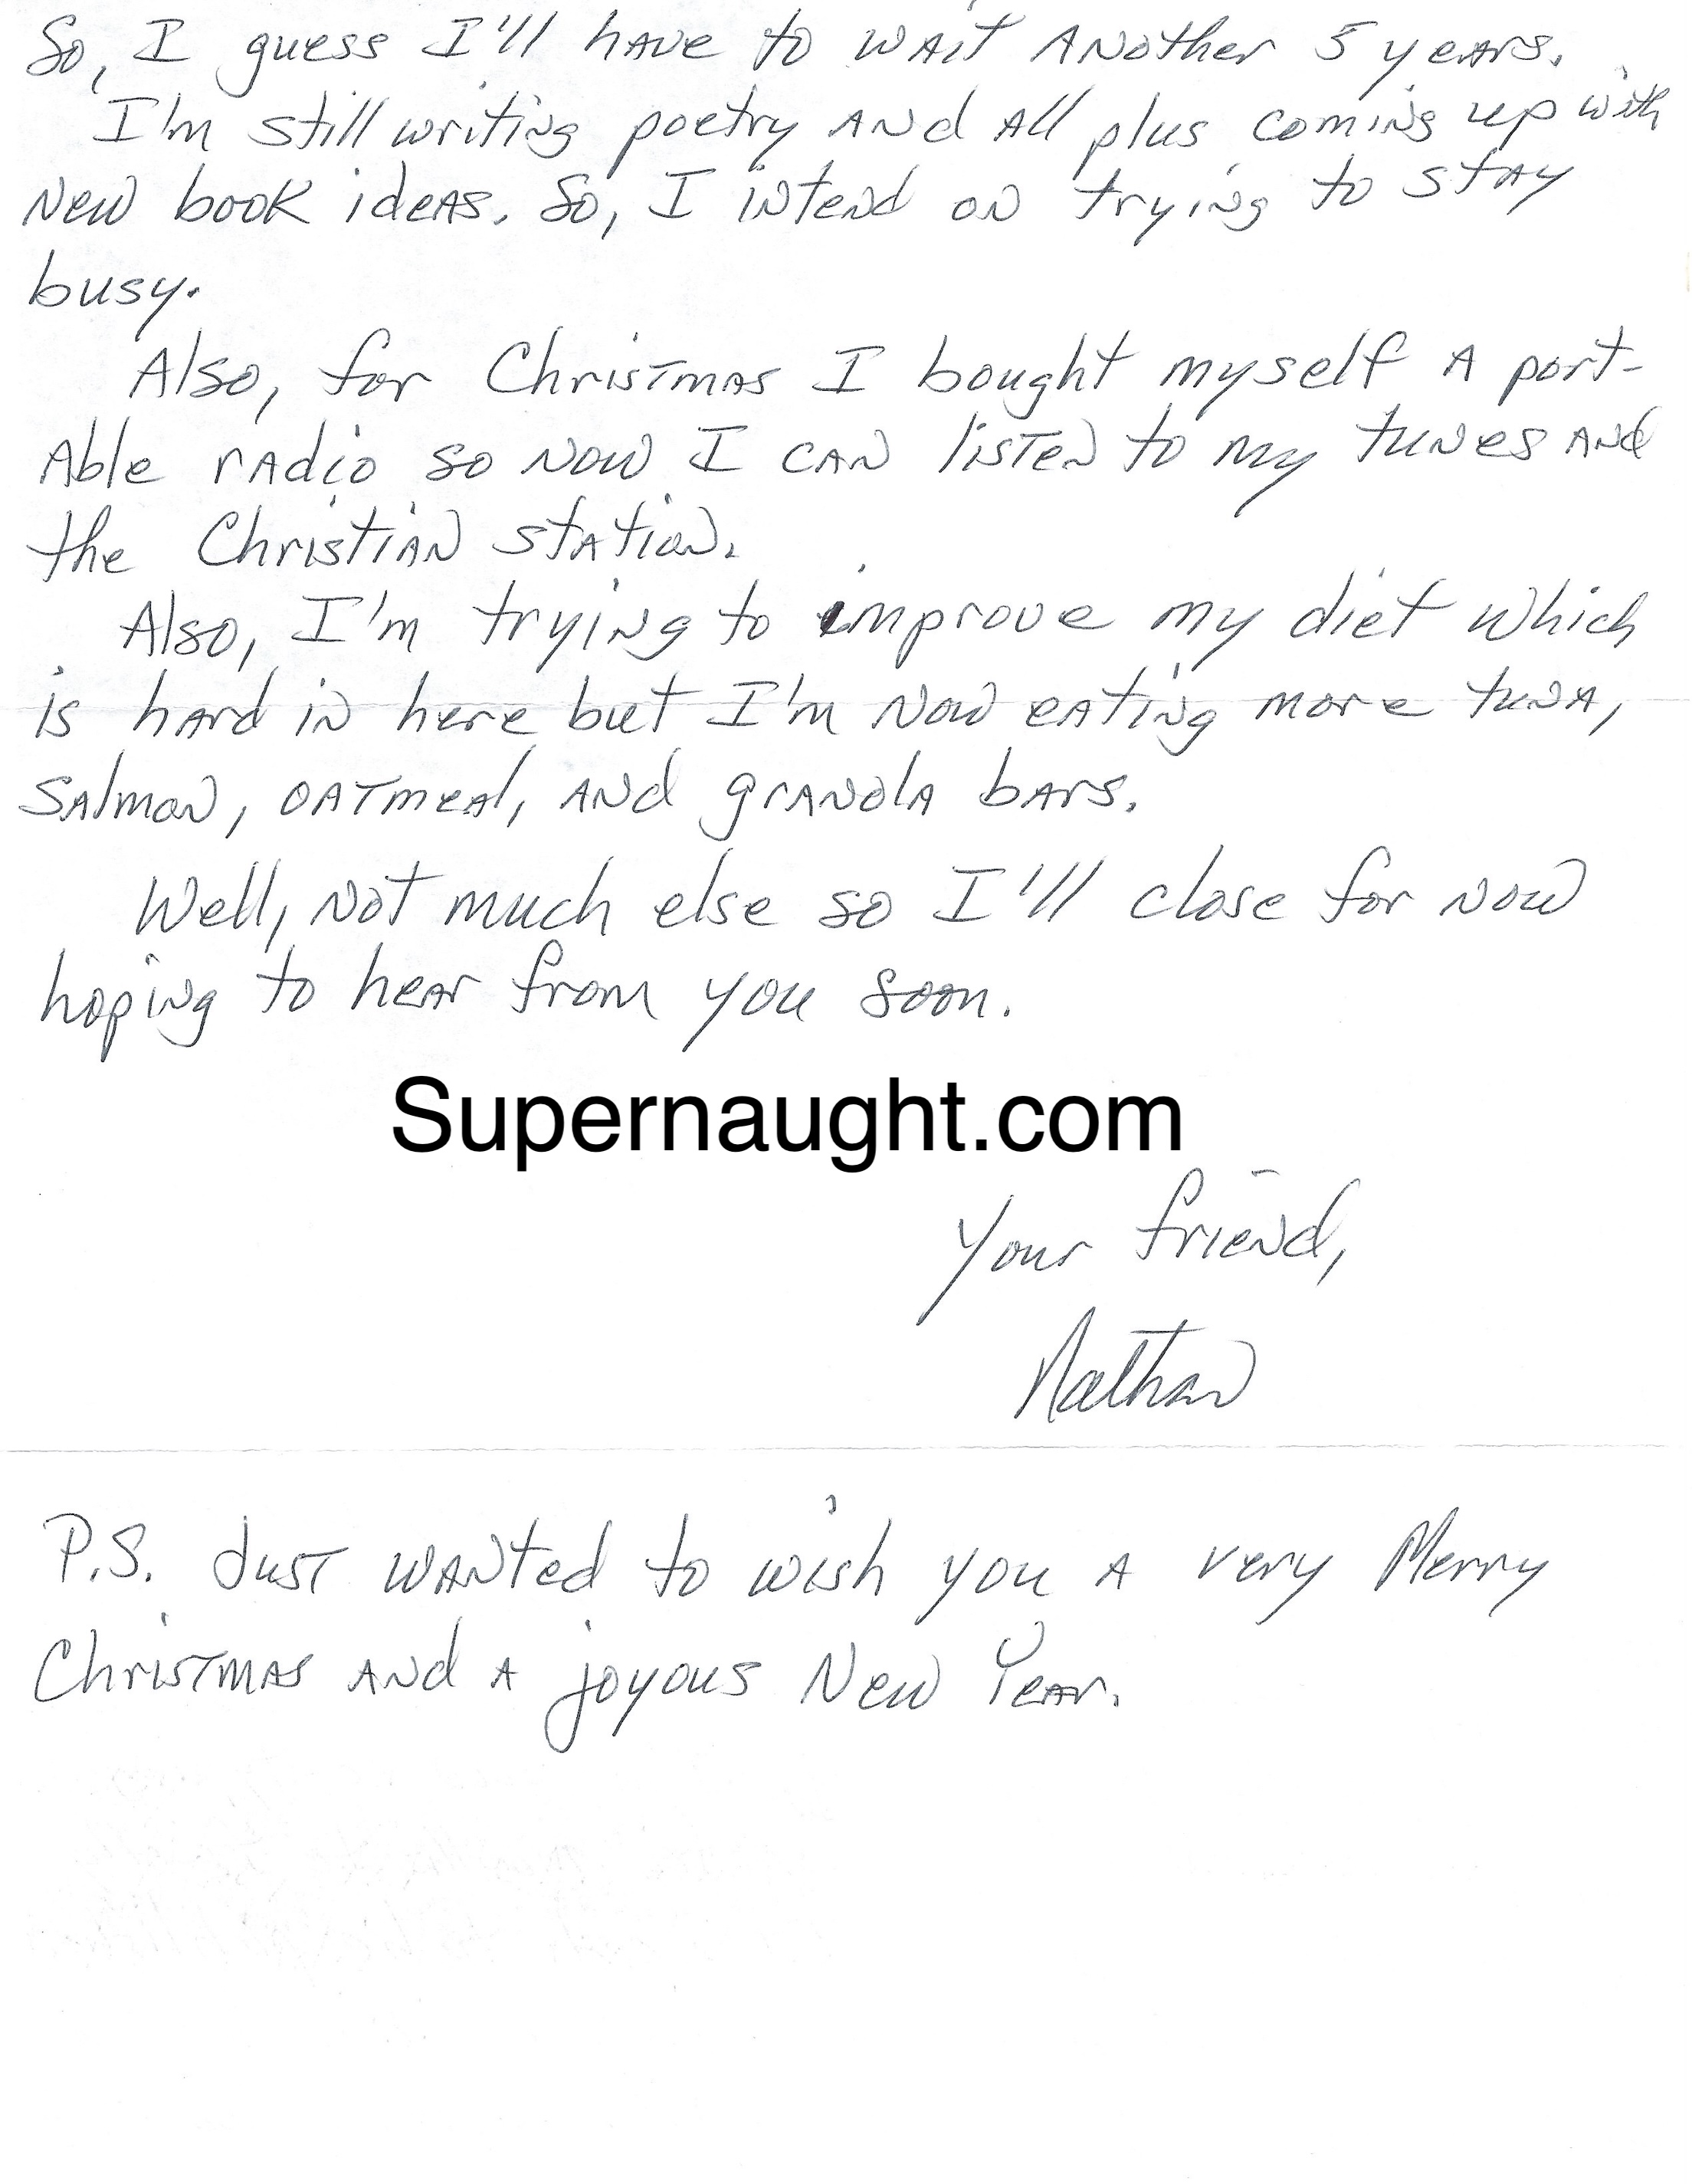 So, I guess I'll have to wait another 5 years.
I'm still writing poetry and all plus coming up with
new book ideas. So, I intend on trying to stay
busy.
Also, for Christmas I bought myself a port-
able radio so now I can listen to my tunes and
the Christian station.
Also, I'm trying to improve my diet which
is hard in here but I'm now eating more tuna,
salmon, oatmeal, and granola bars.
Well, not much else so I'll close for now
hoping to hear from you soon.
Supernaught.com
Your friend,
Nathan
P.S. Just wanted to wish you a very Merry
Christmas and a joyous New Year.